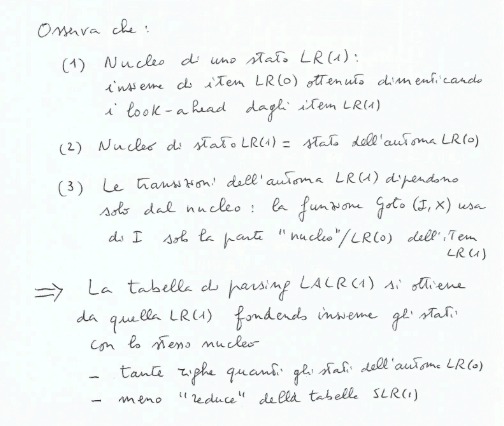 Osserva che :
(1) Nucleo di uno stato LR(1):
insieme di item LR(0) ottenuto dimenticando
i look-ahead dagli item LR(1)
(2) Nucleo di stato LR(1) = stato dell'automa LR(0)
(3) Le transizioni dell'automa LR(1) dipendono
solo dal nucleo : la funzione Goto (I, X) usa
di I solo la parte "nucleo"/LR(0) dell'item
LR(1)
⇒ La tabella di parsing LALR(1) si ottiene
da quella LR(1) fondendo insieme gli stati
con lo stesso nucleo
- tante righe quanti gli stati dell'automa LR(0)
- meno "reduce" della tabella SLR(1)